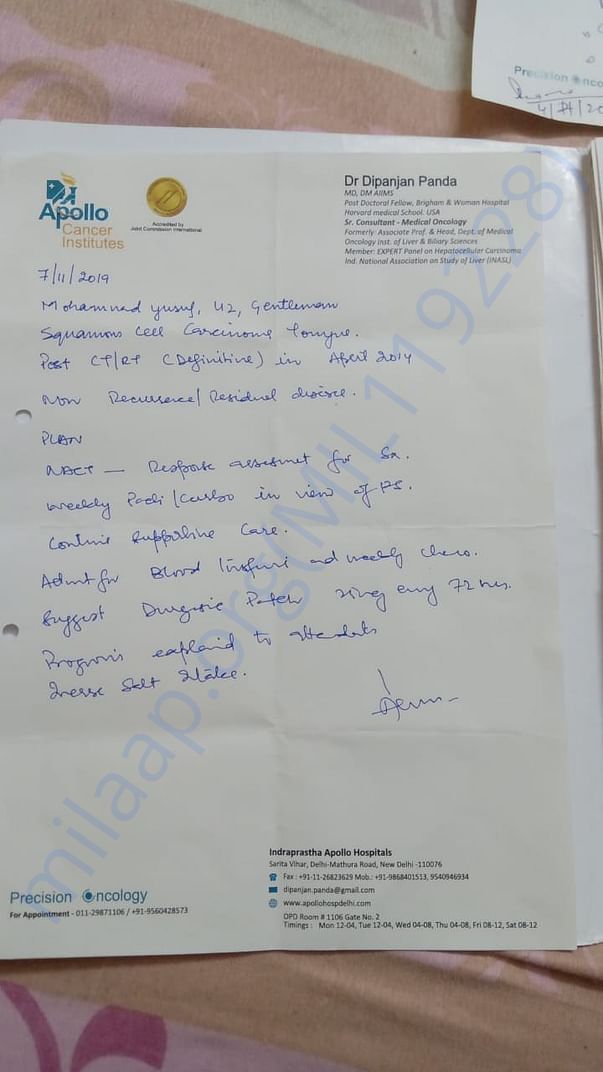 Precision Onco
Apollo
Cancer
Institutes
Accredited by
Joint Commission International
Dr Dipanjan Panda
MD, DM AIIMS
Post Doctoral Fellow, Brigham & Woman Hospital
Harvard medical School. USA
Sr. Consultant - Medical Oncology
Formerly: Associate Prof. & Head, Dept. of Medical
Oncology Inst. of Liver & Biliary Sciences
Member: EXPERT Panel on Hepatocellular Carcinoma
Ind. National Association on Study of Liver (INASL)
7/11/2019
Mohammad Yusuf, 42, Gentleman
Squamous Cell Carcinoma Tongue.
Post CT/RT (Definitive) in April 2014
Now Recurrence/Residual disease.
PLAN
NACT — Response assessment for Sx.
Weekly Pacli/Carbo in view of PS.
Continue Supportive Care.
Admit for Blood and weekly chemo.
Suggest Durogesic Patch every 72 hrs.
Prognosis explained to attendants
Salt Intake.
Indraprastha Apollo Hospitals
Sarita Vihar, Delhi-Mathura Road, New Delhi -110076
Fax : +91-11-26823629 Mob.: +91-9868401513, 9540946934
dipanjan.panda@gmail.com
www.apollohospdelhi.com
OPD Room # 1106 Gate No. 2
Timings : Mon 12-04, Tue 12-04, Wed 04-08, Thu 04-08, Fri 08-12, Sat 08-12
Precision Oncology
For Appointment - 011-29871106 / +91-9560428573
milaap.org(MIL_119228)